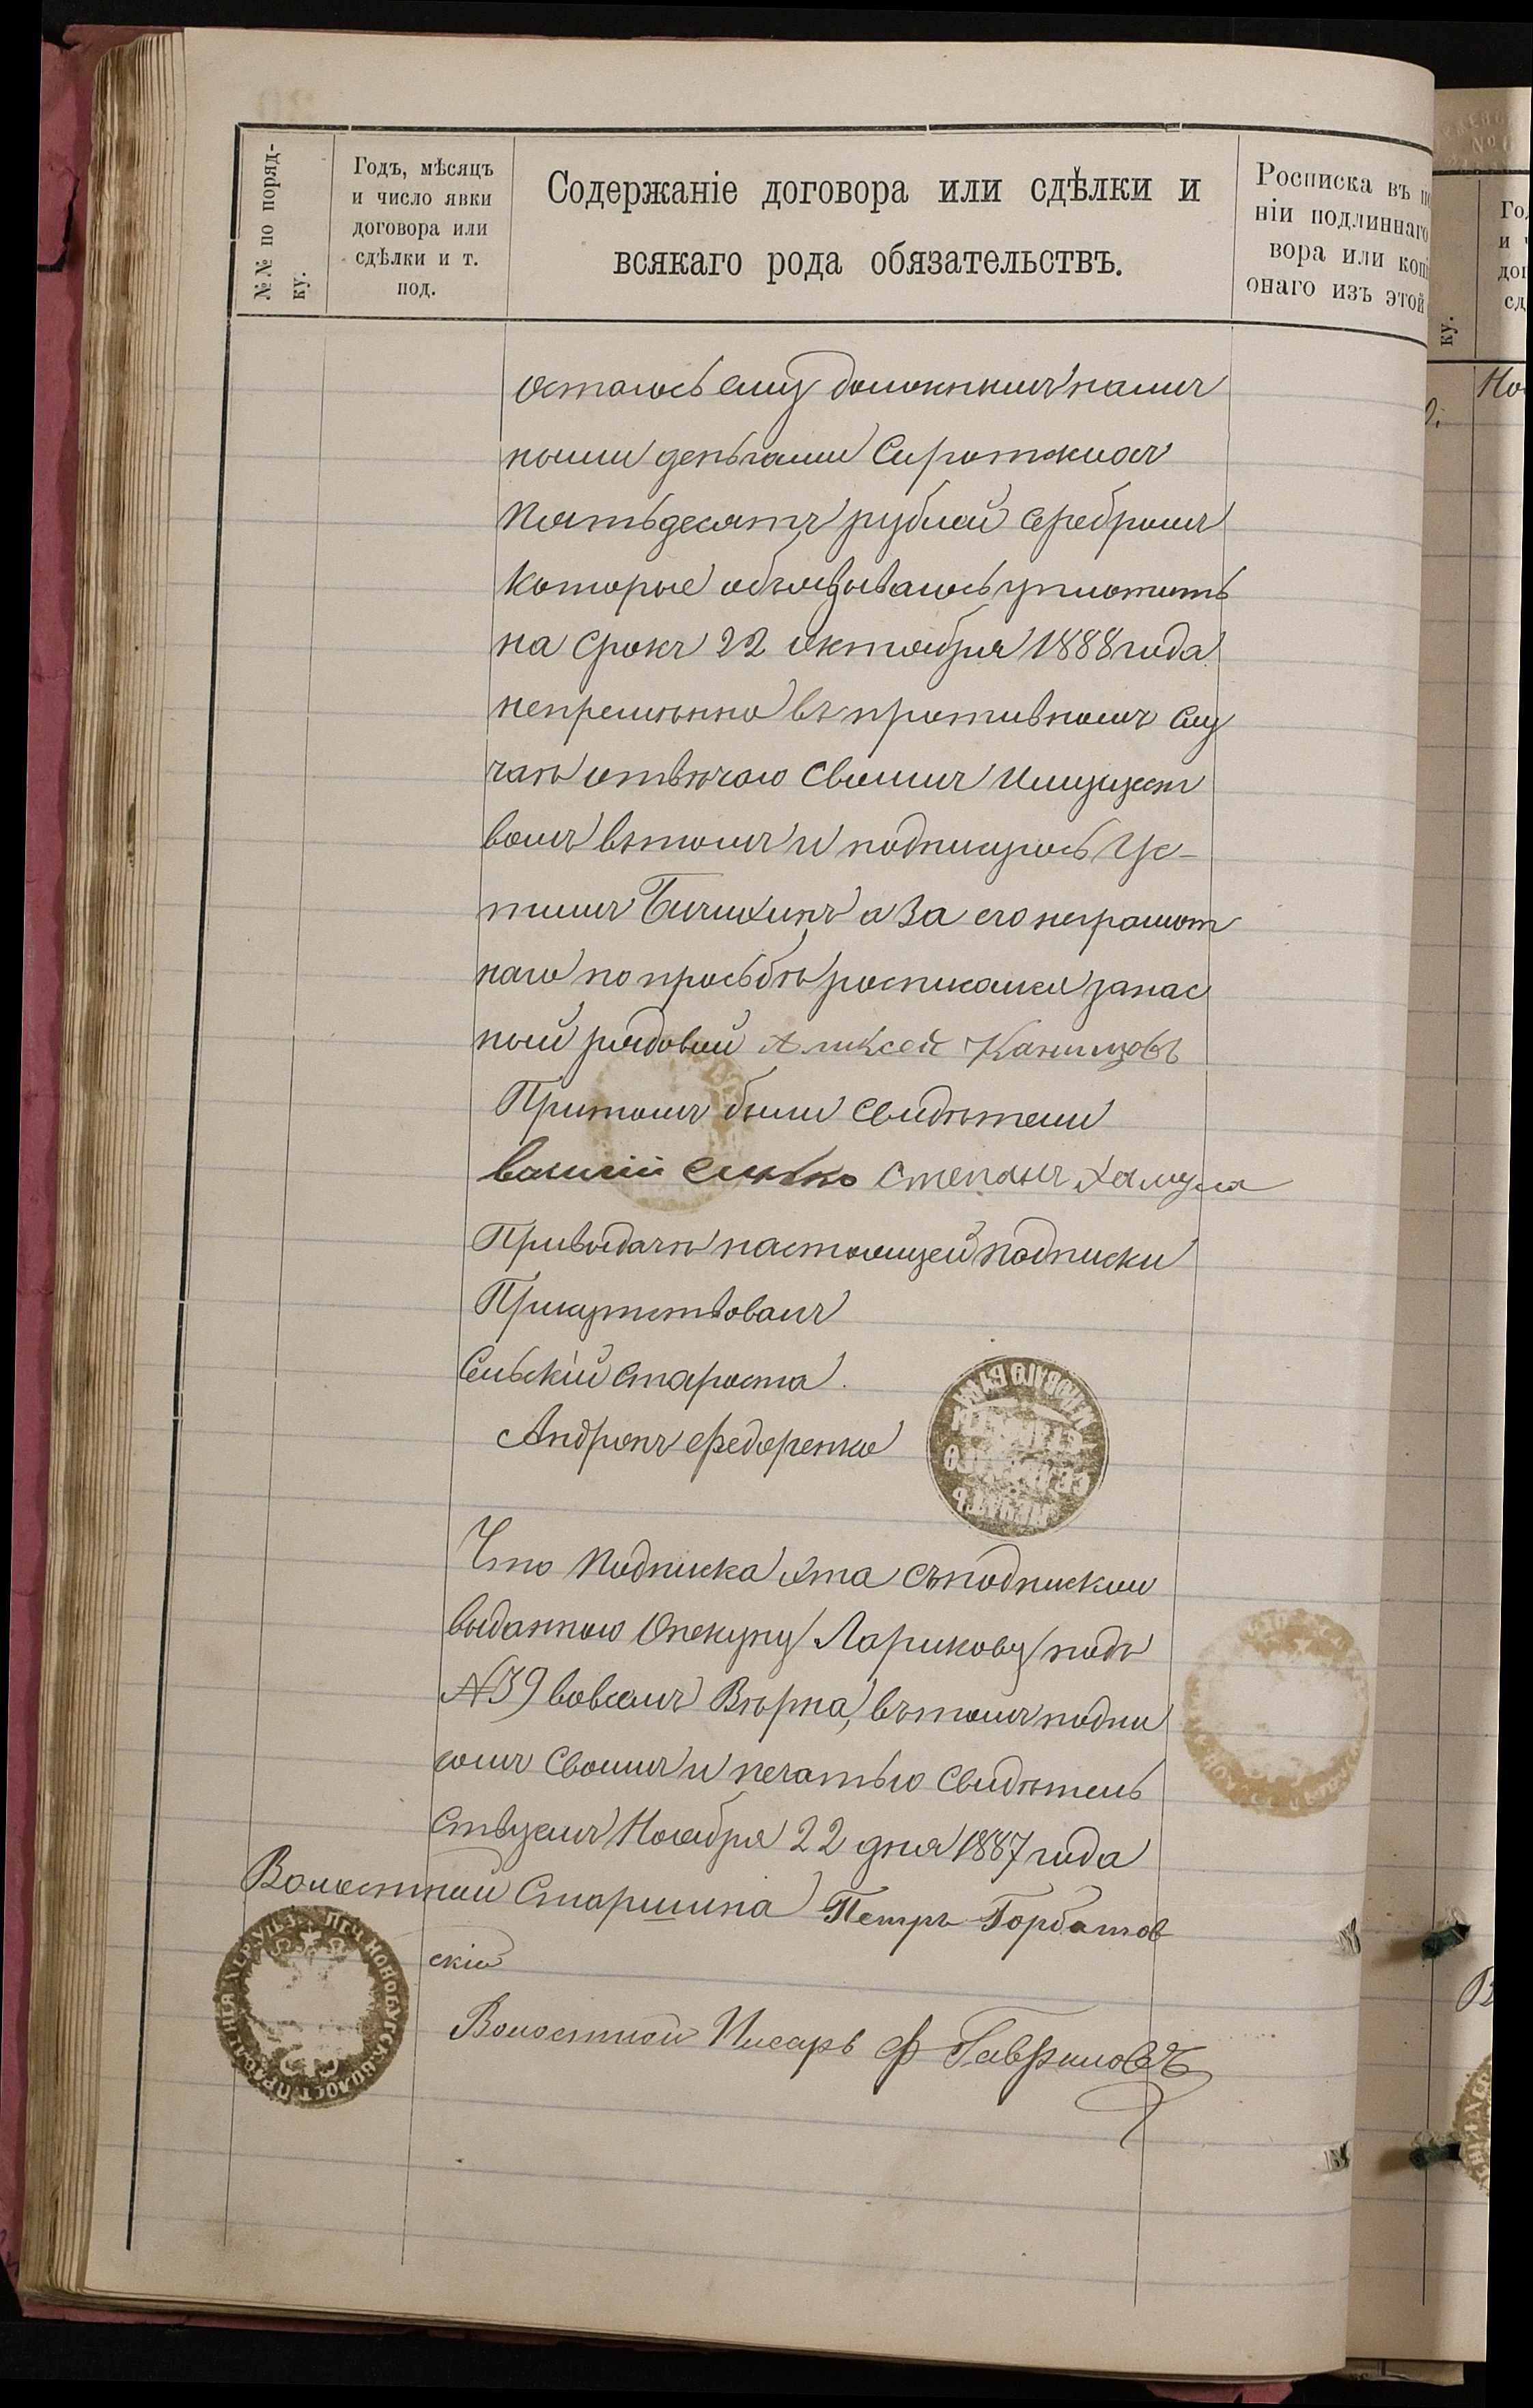 №№ по поряд-
ку.
Годъ, мѣсяцъ
и число явки
договора или
сдѣлки и т.
под.
Содержаніе договора или сдѣлки и
всякаго рода обязательствъ.
Росписка въ
ніи подлиннаго
вора или
онаго изъ этой
остаюсь ему должнымъ налич
ными деньгами Сиротскихъ
Пятьдесятъ рублей серебромъ
Которые обязываюсь уплотить
на срокъ 22 октября 1888 года
непременно въ противномъ слу
чаѣ отвѣчаю своимъ Имущест
вомъ втомъ и подпишусь Ус-
тимъ а За его неграмот
наго по просьбѣ росписался запас
ной рядовой Аликсей
Притомъ были свидѣтели
Степанъ
Привыдачѣ настоящей подписки
Присутствовалъ
Сельскій староста.
Андронъ Федоренко
Что Подписка эта съ подпискою
выданною Опекуну Ларикову подъ
№39 вовсемъ Вѣрна, въ томъ подпи
сомъ своимъ и печатью свидѣтель
ствуемъ Ноября 22 дня 1887 года
Волостной Старшина Петръ Горбатов
скій
Волостной Писарь Ф Гавриловъ